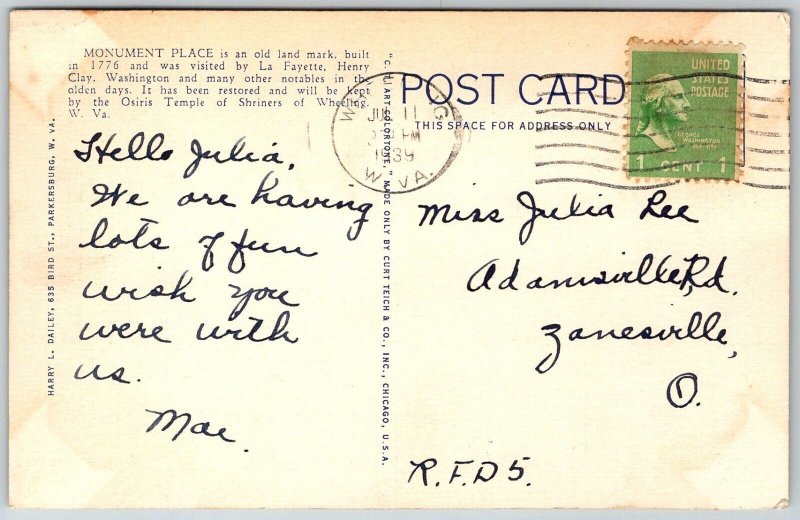 MONUMENT PLACE is an old land mark, built
in 1776 and was visited by La Fayette, Henry
Clay, Washington and many other notables in the
olden days. It has been restored and will be kept
by the Osiris Temple of Shriners of Wheeling,
W. Va.
HARRY L. DAILEY, 635 BIRD ST., PARKERSBURG, W. VA.
Hello Julia,
We are having
lots of fun
wish you
were with
us.
Mae.
"C. T. ART-COLORTONE," MADE ONLY BY CURT TEICH & CO., INC., CHICAGO, U.S.A.
POST CARD
THIS SPACE FOR ADDRESS ONLY
11
PM
1939
W. VA.
UNITED
STATES
POSTAGE
GEORGE
WASHINGTON
1 CENT 1
Miss Julia Lee
Adamsville Rd.
Zanesville,
O.
R.F.D 5.